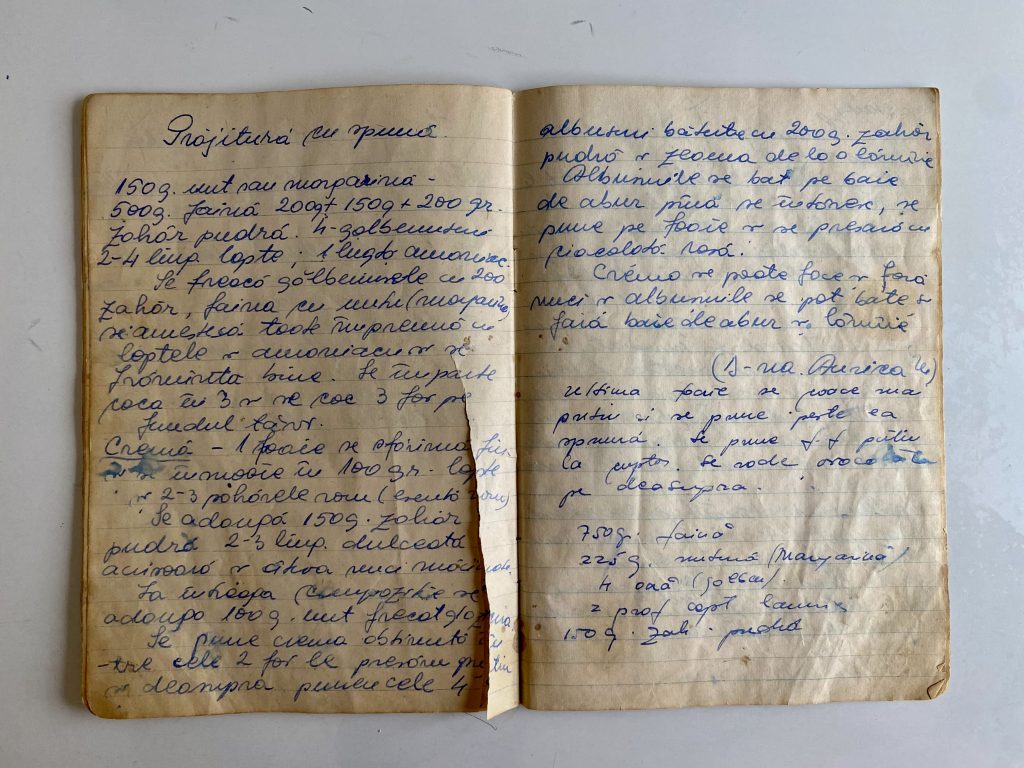 Prăjitură cu spumă
150g. unt sau margarină -
500g. faină 200g + 150g + 200 gr.
zahăr pudră. 4 gălbenusuri
2-4 ling. lapte, 1 lingtă amoniac.
Se freacă gălbenusele cu 200
zahăr, faina cu untu (margarina)
se amestecă toate împreună cu
laptele și amoniacu și se
frămîntă bine. Se împarte
coca în 3 și se coc 3 foi pe
fundul tăvii.
Cremă - 1 foaie se sfărimă fin
se înmoaie în 100 gr. lapte
și 2-3 păhărele rom (esență rom)
Se adaugă 150g. zahăr
pudră 2-3 ling. dulceată
acrisoară și citiva nuci măcinate.
La întreaga compozitie se
adauga 100g. unt frecat
Se pune crema obtinută în
-tre cele 2 foi le presăm putin
și deasupra punem cele 4
albusuri bătute cu 200g. zahăr
pudră și zeama de la o lămîie
Albusurile se bat pe baie
de abur pînă se întăresc, se
pune pe foaie și se presară cu
ciocolată rasă.
Crema se poate face și fără
nuci și albusurile se pot bate și
fară baie de abur și lămîie
(D-na Aurica)
ultima foaie se coace mai
putin si se pune peste ea
spumă. Se pune f. f putin
la cuptor. Se rade ciocolata
pe deasupra.
750g. faină
225g. untură (Margarină)
4 ouă (golben)
2 praf copt
150g. zah. pudră